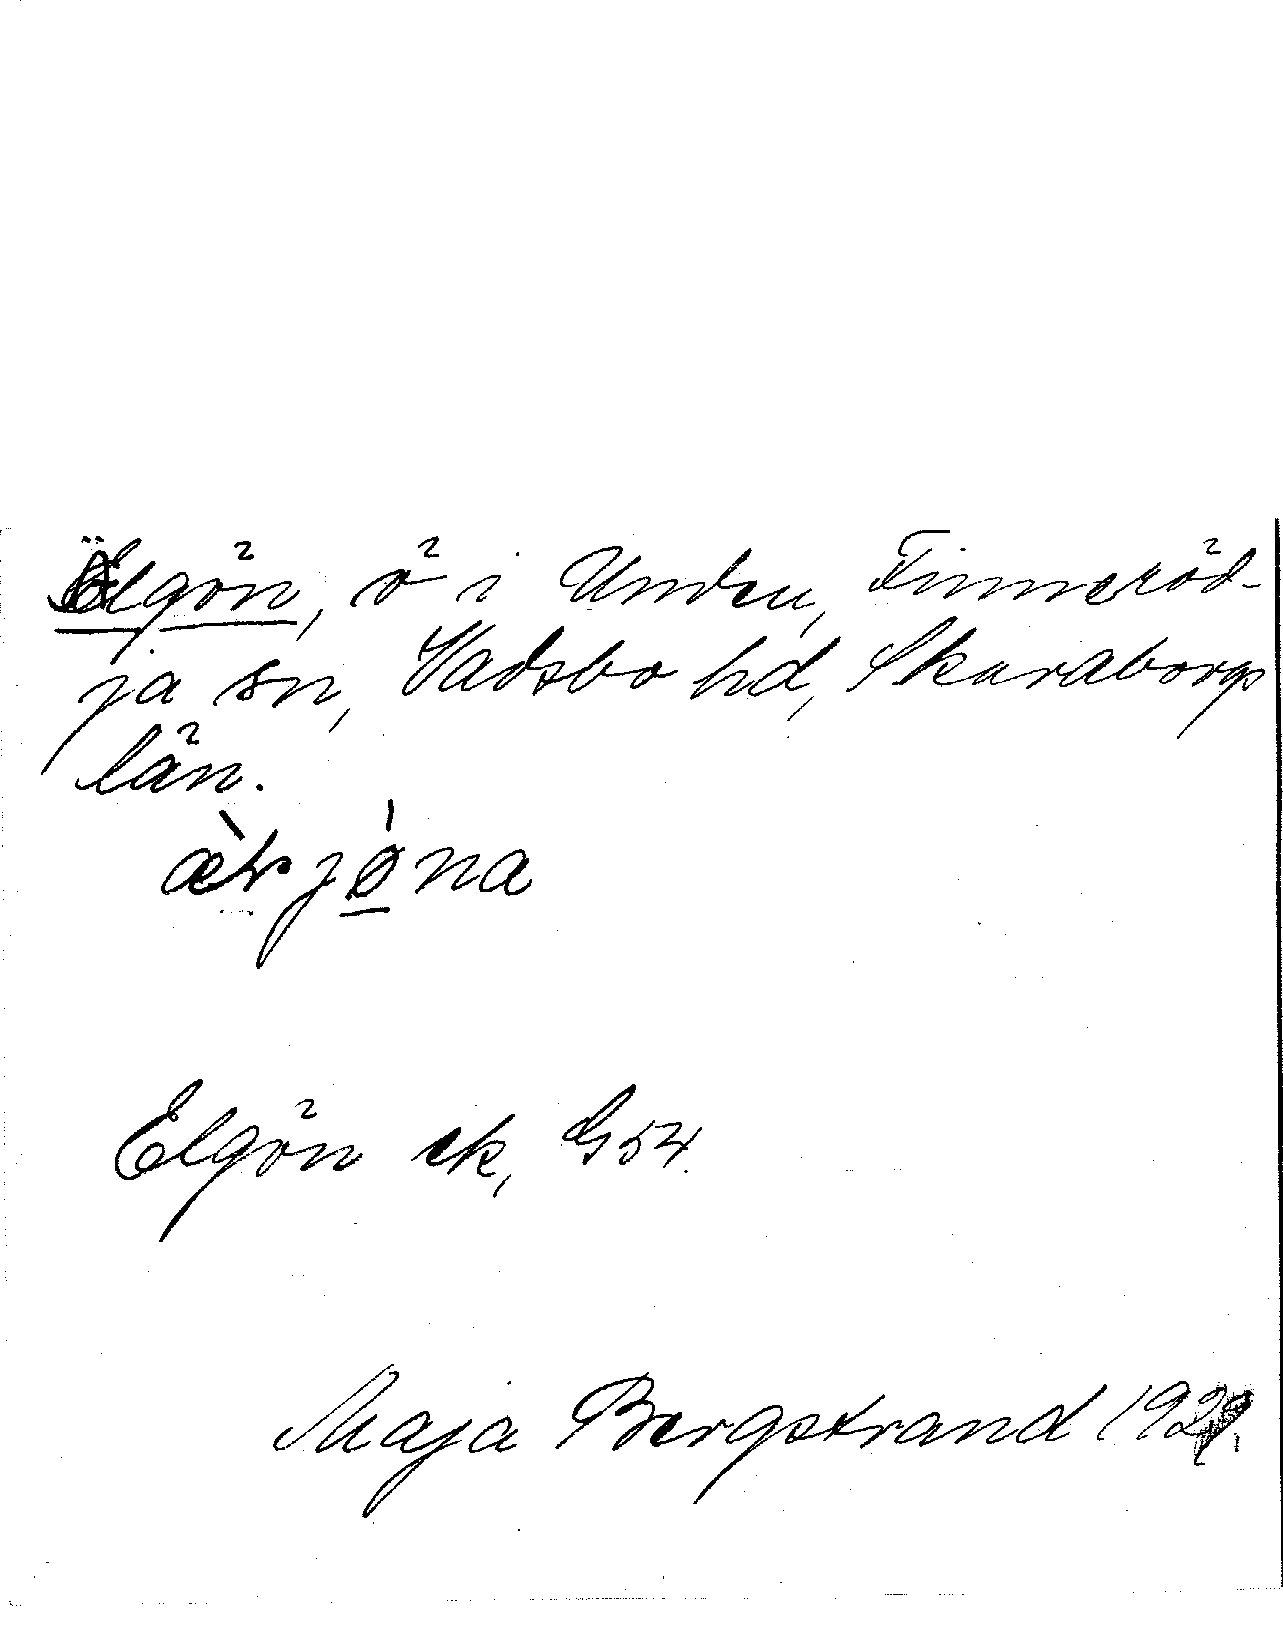 Älgön, ö i Unden, Finneröd-
ja sn, Vadsbo hd, Skaraborgs
län.
Elgön ek, G54
Maja Bergstrand 1929.